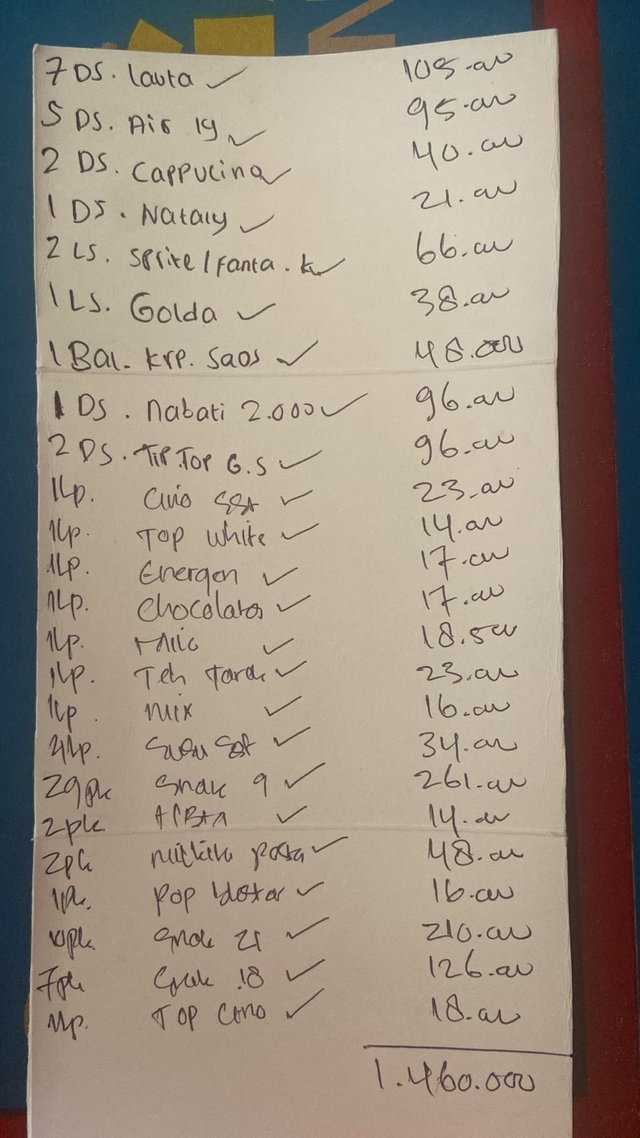 7 DS. Lauta ✓ 105.000
5 DS. Air 19 ✓ 95.000
2 DS. Cappucino ✓ 40.000
1 DS. Nataly ✓ 21.000
2 LS. Sprite/Fanta. k ✓ 66.000
1 LS. Golda ✓ 38.000
1 Bal. krp. Saos ✓ 48.000
1 DS. nabati 2.000 ✓ 96.000
2 DS. TIP.TOP G.S ✓ 96.000
1Lp. ✓ 23.000
1Lp. Top white ✓ 14.000
1Lp. Energen ✓ 17.000
1Lp. Chocolatos ✓ 17.000
1Lp. Milo ✓ 18.500
1Lp. Teh Tarek ✓ 23.000
1Lp. mix ✓ 16.000
Susu ✓ 34.000
29pk Snak 9 ✓ 261.000
2pk ✓ 14.000
2pk ✓ 48.000
1pk. Pop ✓ 16.000
10pk Snak 21 ✓ 210.000
7pk Snak .18 ✓ 126.000
1Lp. Top Cino ✓ 18.000
1.460.000